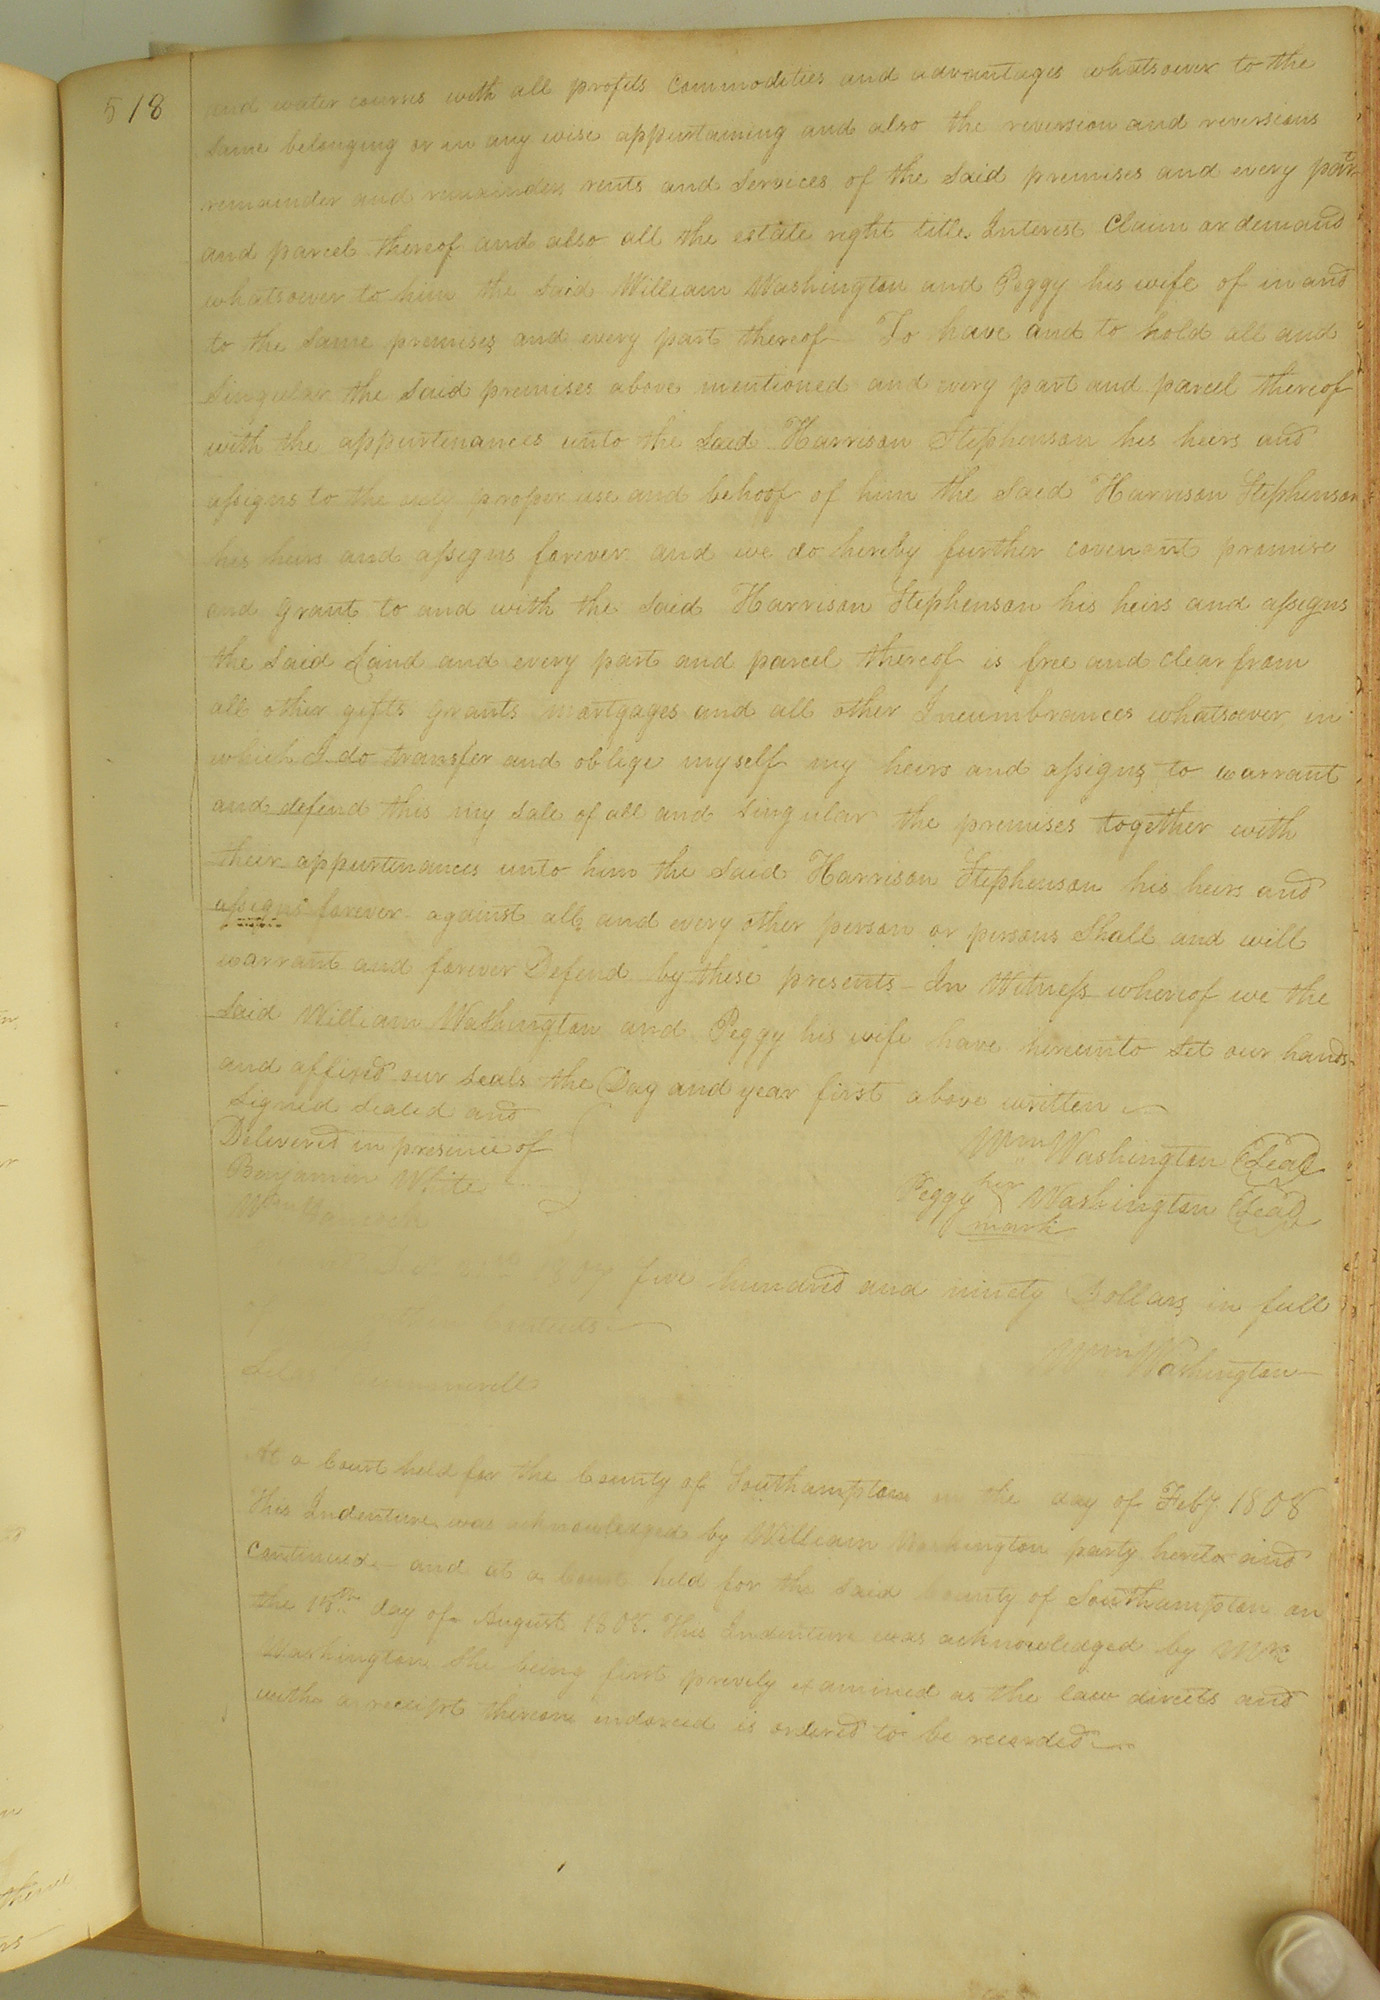 518
and water courses with all profits Commodities and advantages whatsoever to the
same belonging or in any wise appurtaining and also the reversion and reversions
remainder and remainders rents and services of the said premises and every part
and parcel thereof and also all the estate right title Interest Claim or demand
whatsoever to him the said William Washington and Peggy his wife of in and
to the same premises and every part thereof To have and to hold all and
Singular the said premises above mentioned and every part and parcel thereof
with the appurtenances unto the said Harrison Stephenson his heirs and
assigns to the only proper use and behoof of him the said Harrison Stephenson
his heirs and assigns forever and we do hereby further covenant promise
and grant to and with the said Harrison Stephenson his heirs and assigns
the said Land and every part and parcel thereof is free and clear from
all other gifts grants mortgages and all other Incumbrances whatsoever in
which I do transfer and oblige myself my heirs and assigns to warrant
and defend this my sale of all and singular the premises together with
their appurtenances unto him the said Harrison Stephenson his heirs and
assigns forever against all and every other person or persons Shall and will
warrant and forever Defend by these presents - In Witness whereof we the
said William Washington and Peggy his wife have hereunto set our hands
and affixed our seals the Day and year first above written
Signed sealed and
Delivered in presence of
Wm Washington Seal
Benjamin White
Peggy her Washington Seal
mark
Wm
1807 five hundred and ninety Dollars in full
Wm Washington
At a Court held for the County of Southampton on the day of Feby 1808
This Indenture was acknowledged by William Washington party hereto and
Continued - and at a Court held for the said County of Southampton on
the 18th day of August 1808. This Indenture was acknowledged by
Washington She being first privily examined as the law directs and
with a receipt thereon indorsed is ordered to be recorded